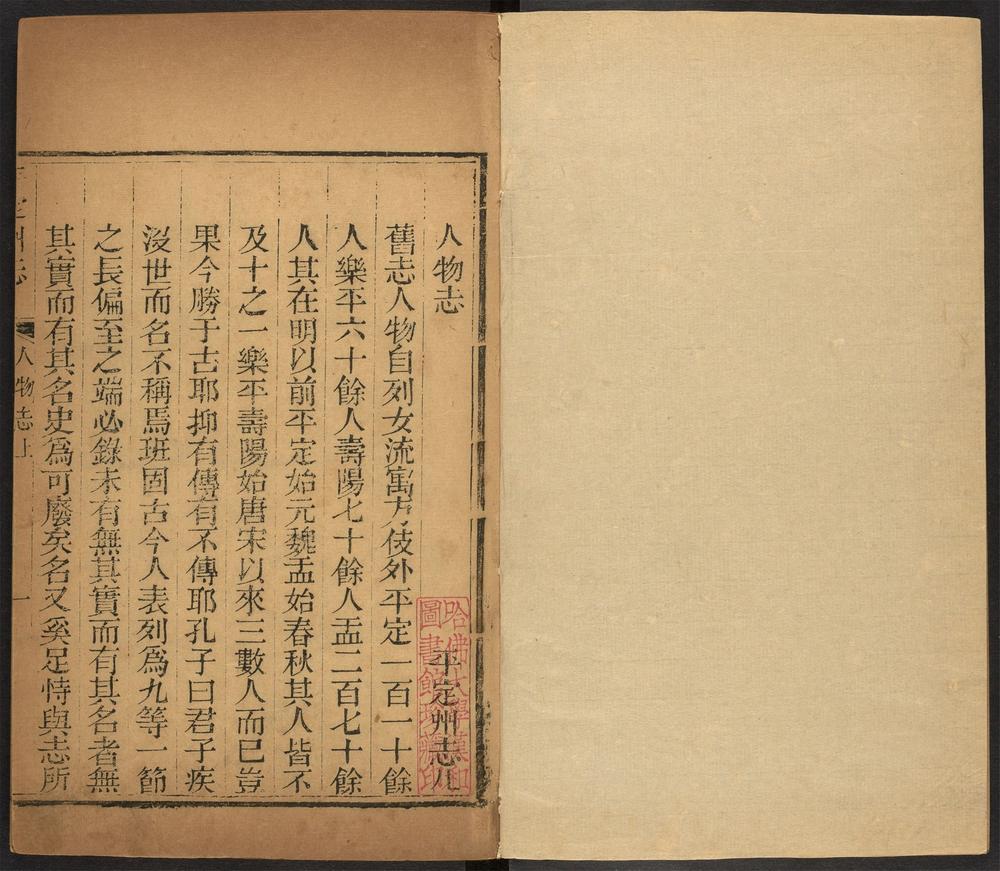 人物志 平定州志八
舊志人物自列女流寓方伎外平定一百一十餘
人樂平六十餘人壽陽七十餘人盂二百七十餘
人其在明以前平定始元魏盂始春秋其人皆不
及十之一樂平壽陽始唐宋以來三數人而已豈
果今勝于古耶抑有傳有不傳耶孔子曰君子疾
沒世而名不稱焉班固古今人表列爲九等一節
之長偏至之端必錄未有無其實而有其名者無
其實而有其名史爲可廢矣名又奚足恃與志所
定州志 人物志上 一
哈佛大學漢和
圖書館珍藏印